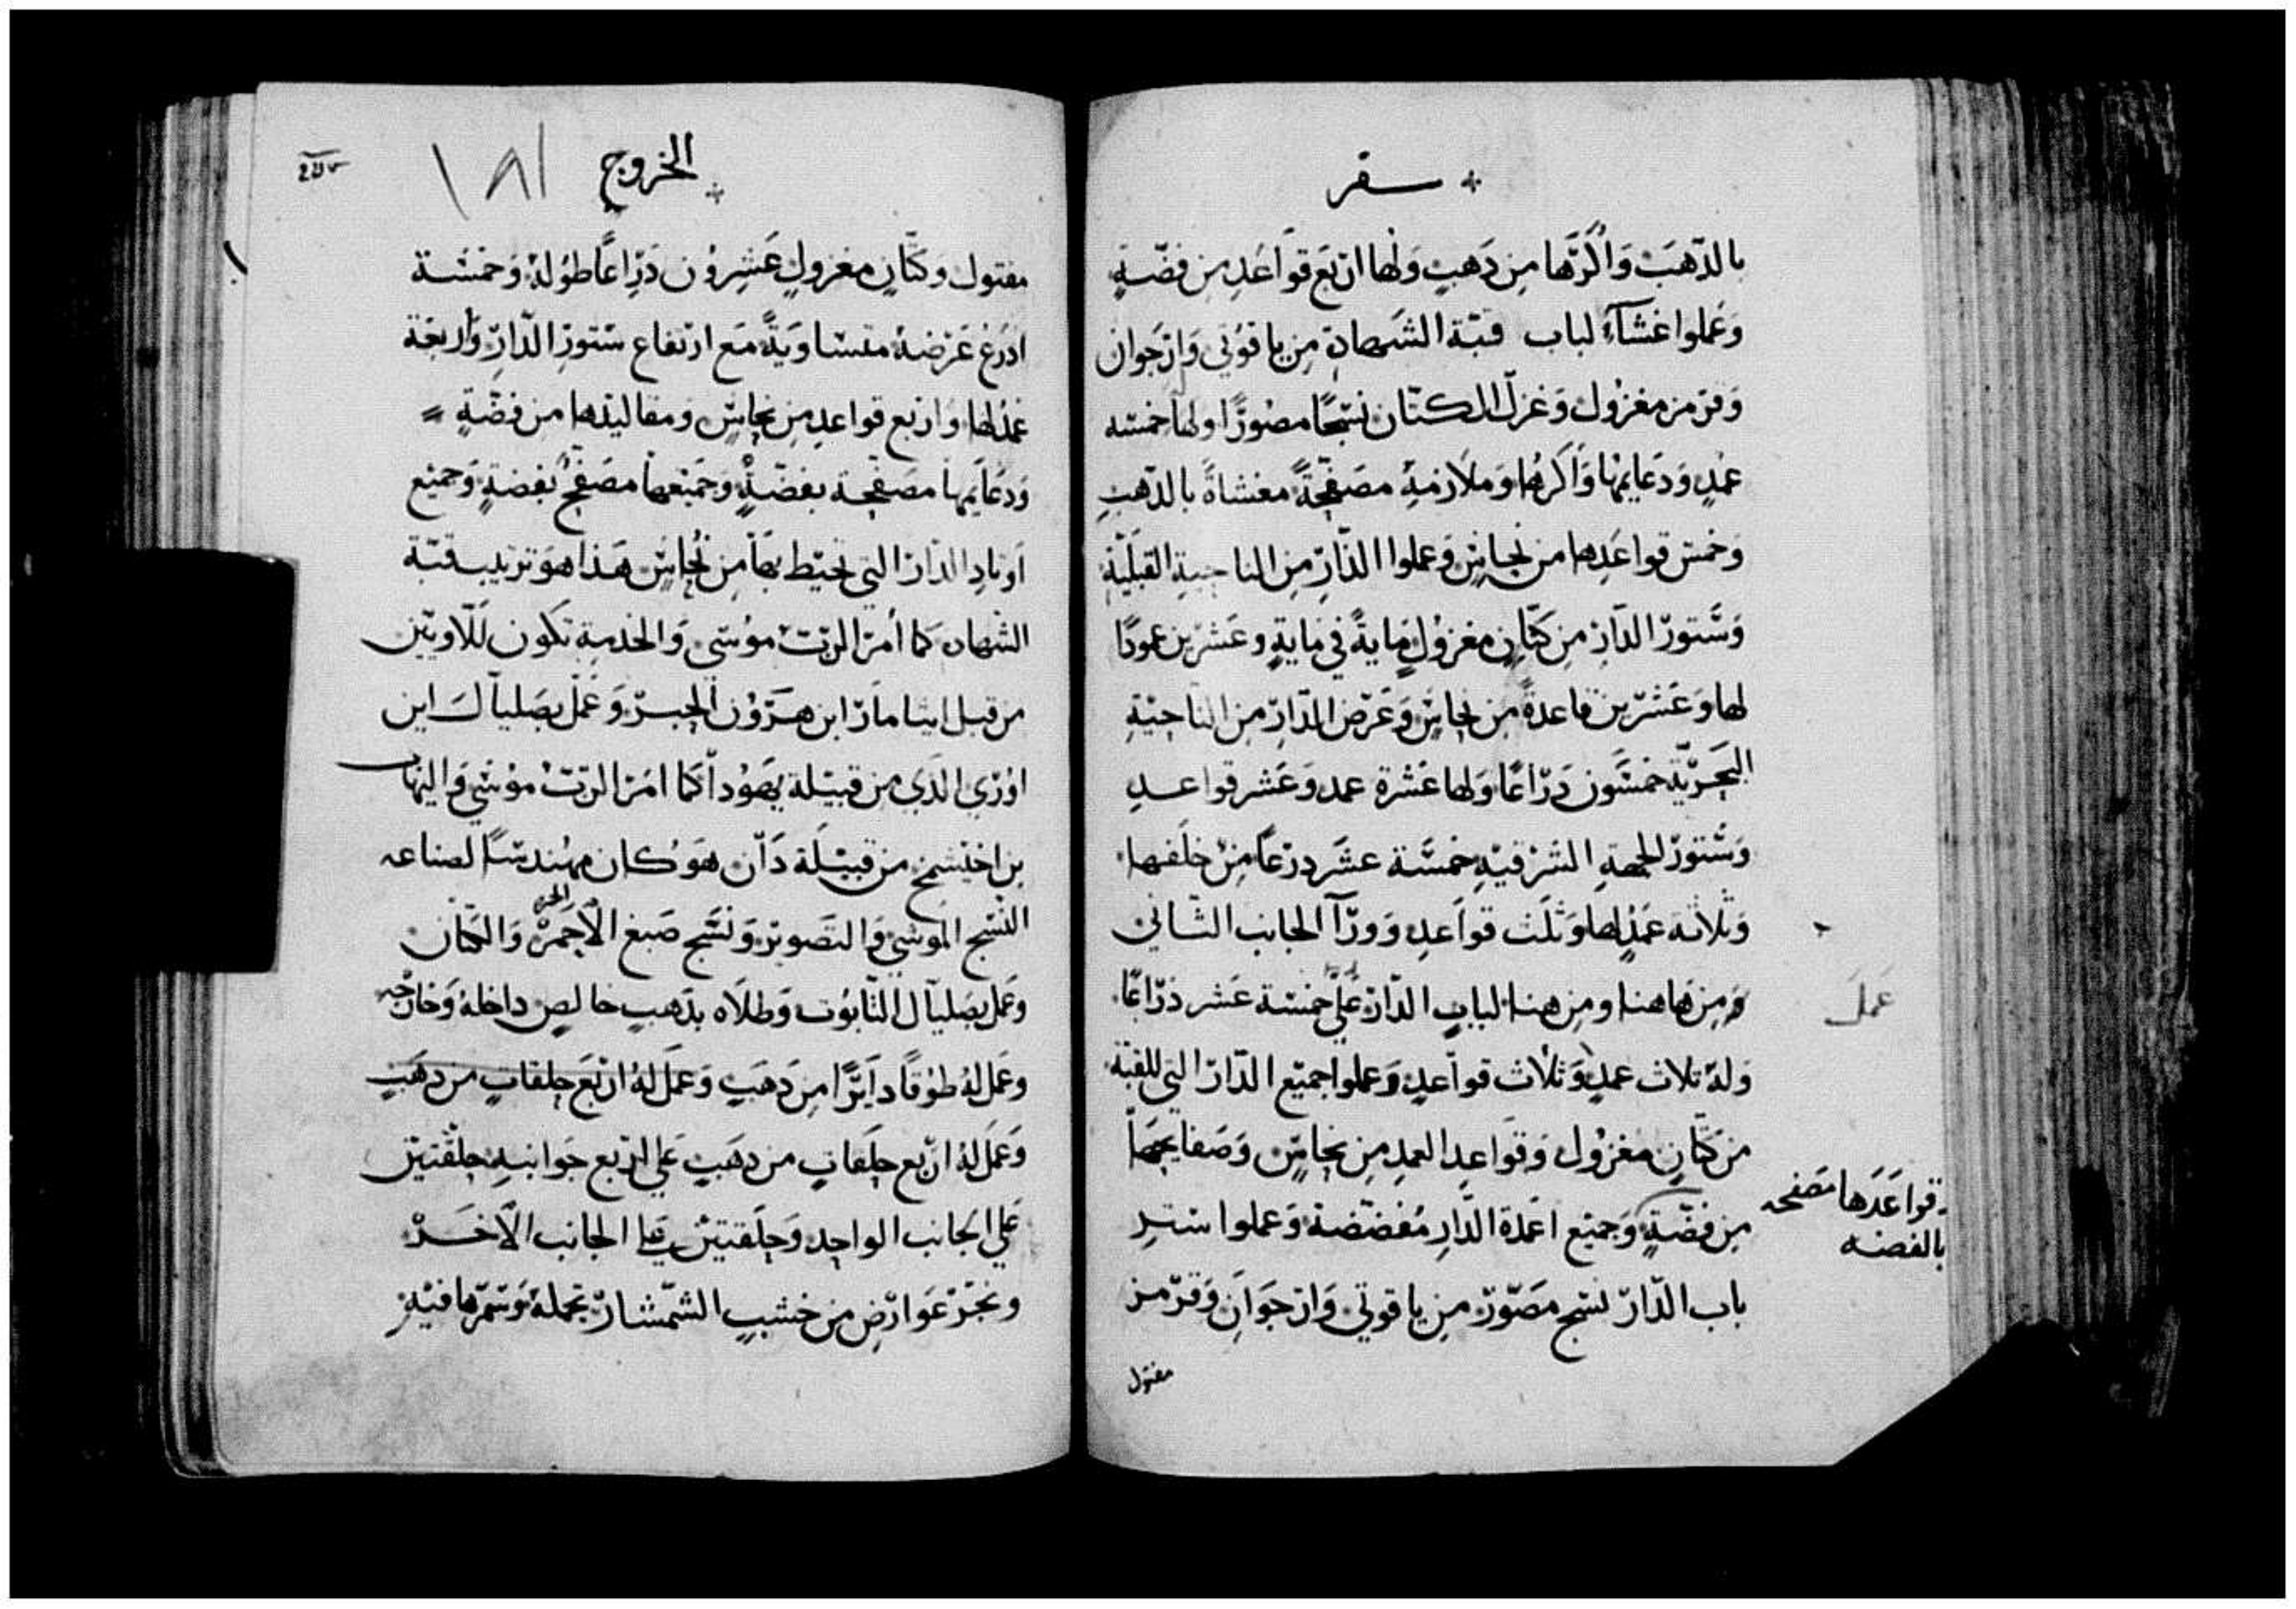 سفر
بالذهب واكرها من ذهب ولها اربع قواعد من فضة
وعملوا غشاء لباب قبة الشهادة من ياقوتي وارجوان
وقرمز مغزول وغزل الكتان نسجًا مصورًا ولها خمسه
عمد ودعايمها واكرها وملازمة مصفحةً مغشاةً بالذهب
وخمس قواعدها من نحاس وعملوا الدار من الناحية القبلية
وستور الدار من كتان مغزول ماية في ماية وعشرين عمودًا
لها وعشرين قاعدة من نحاس وعرض الدار من الناحية
البحرية خمسون دراعًا ولها عشرة عمد وعشر قواعد
وستور الجهة الشرقية خمسة عشر درعًا من خلفها
وثلاثة عمد لها وثلث قواعد وورآ الجانب الثاني
ومن هاهنا ومن هنا لباب الدار على خمسة عشر ذراعًا
عمل
وله ثلاث عمد وثلاث قواعد وعملوا جميع الدار التي للقبة
من كتان مغزول وقواعد العمد من نحاس وصفايحها
قواعدها مصفحه
بالفضه
من فضة وجميع اعمدة الدار مفضضة وعملوا ستر
باب الدار نسج مصور من ياقوتي وارجوان وقرمز
مفتول
الخروج
١٨١
مفتول وكتان مغزول عشرون دراعًا طوله وخمسة
ادرع عرضه متساوية مع ارتفاع ستور الدار واربعة
عمد لها واربع قواعد من نحاس ومقاليدها من فضة
ودعايمها مصفحة بفضة وجميعها مصفح بفضة وجميع
اوتاد الدار التي تحيط بها من نحاس هذا هو ترتيب قبة
الشهاده كما أمر الرب موسى والخدمة تكون للاويين
من قبل ايثامار ابن هرون الحبر وعمل بصليال ابن
اوري الذي من قبيلة يهودا كما امر الرب موسى واليهاب
بن اخيسمخ من قبيلة دان هو كان مهندسًا لصناعه
النسج الموشى والتصوير ونسج صبغ الاحمر والكتان
وعمل بصليال التابوت وطلاه بذهب خالص داخله وخارجه
وعمل له طوقًا دايرًا من ذهب وعمل له اربع حلقات من ذهب
وعمل له اربع حلقات من ذهب على اربع جوانبه حلقتين
على الجانب الواحد وحلقتين على الجانب الاخر
ونجر عوارض من خشب الشمشار تحمله وسمرها فيه